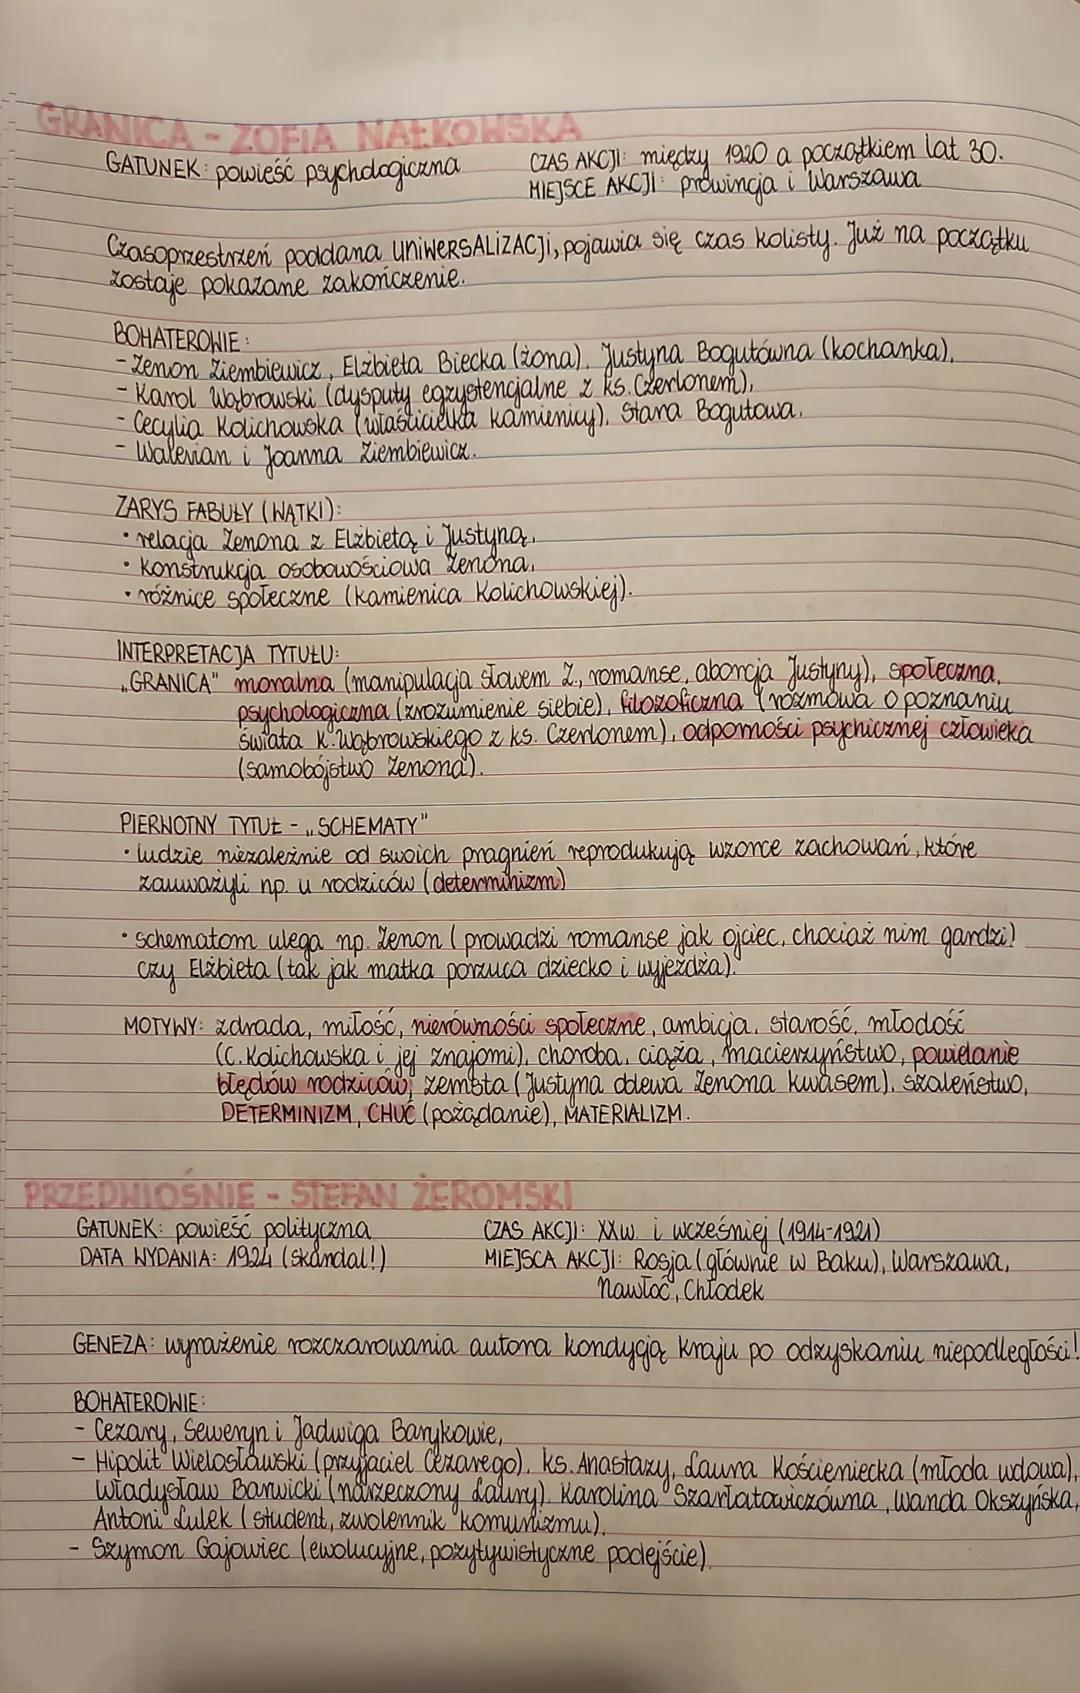 GRANICA - ZOFIA NAŁKOWSKA
GATUNEK: powieść psychologiczna
CZAS AKCJI: między 1920 a początkiem lat 30.
MIEJSCE AKCJI: prowincja i Warszawa
Czasoprzestrzeń poddana UNIWERSALIZACJI, pojawia się czas kolisty. Już na początku
zostaje pokazane zakończenie.
BOHATEROWIE:
- Zenon Ziembiewicz, Elżbieta Biecka (żona), Justyna Bogutówna (kochanka),
- Karol Wąbrowski (dysputy egzystencjalne z ks. Czerlonem),
- Cecylia Kolichowska (właścicielka kamienicy), Stara Bogutowa,
- Walerian i Joanna Ziembiewicz.
ZARYS FABUŁY (WĄTKI):
• relacja Zenona z Elżbietą i Justyną,
• konstrukcja osobowościowa Zenona,
• różnice społeczne (kamienica Kolichowskiej).
INTERPRETACJA TYTUŁU:
„GRANICA" moralna (manipulacja słowem Z, romanse, aborcja Justyny), społeczna,
psychologiczna (zrozumienie siebie), filozoficzna (rozmowa o poznaniu
świata K. Wąbrowskiego z ks. Czerlonem), odporności psychicznej człowieka
(samobójstwo Zenona).
PIERWOTNY TYTUŁ - „SCHEMATY"
• ludzie niezależnie od swoich pragnień reprodukują wzorce zachowań, które
zauważyli np. u rodziców (determinizm)
• schematom ulega np. Zenon (prowadzi romanse jak ojciec, chociaż nim gardzi)
czy Elżbieta (tak jak matka porzuca dziecko i wyjeżdża).
MOTYWY: zdrada, miłość, nierówności społeczne, ambicja, starość, młodość
(C. Kolichowska i jej znajomi), choroba, ciąża, macierzyństwo, powielanie
błędów rodziców, zemsta (Justyna oblewa Zenona kwasem), szaleństwo,
DETERMINIZM, CHUĆ (pożądanie), MATERIALIZM.
PRZEDWIOŚNIE - STEFAN ŻEROMSKI
GATUNEK: powieść polityczna
CZAS AKCJI: XXw. i wcześniej (1914-1921)
DATA WYDANIA: 1924 (skandal!)
MIEJSCA AKCJI: Rosja (głównie w Baku), Warszawa,
Nawłoć, Chłodek
GENEZA: wyrażenie rozczarowania autora kondycją kraju po odzyskaniu niepodległości!
BOHATEROWIE:
- Cezary, Seweryn i Jadwiga Barykowie,
- Hipolit Wielosławski (przyjaciel Cezarego), ks. Anastazy, Laura Kościeniecka (młoda wdowa),
Władysław Barwicki (narzeczony Laury), Karolina Szarłatowiczówna, Wanda Okszyńska,
Antoni Lulek (student, zwolennik komunizmu),
- Szymon Gajowiec (ewolucyjne, pozytywistyczne podejście)